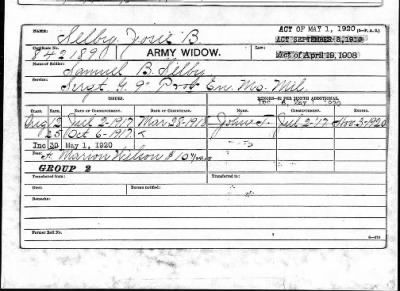 NAME: Selby, Josie B
ACT OF MAY 1, 1920
Certificate No. 842189
ARMY WIDOW.
ACT SEPTEMBER 8, 1916
Act of April 19, 1908
Name of Soldier:
Samuel B. Selby
Service:
First Lt. 9" Prov En. Mo. Mil.
ISSUES.
MAY 1920
CLASS. DATE OF COMMENCEMENT. DATE OF COMMENCEMENT. NAME. COMMENCEMENT. ENDING.
Orig 12 Jul 2-1917 Mar 28-1918 John T. Jul 2-17 Nov. 3-1920
25 Oct 6-1917
Inc 30 May 1, 1920
A. Marion Wilson $10
GROUP 2
Transferred from:
Transferred to:
Remarks:
Former Roll No.